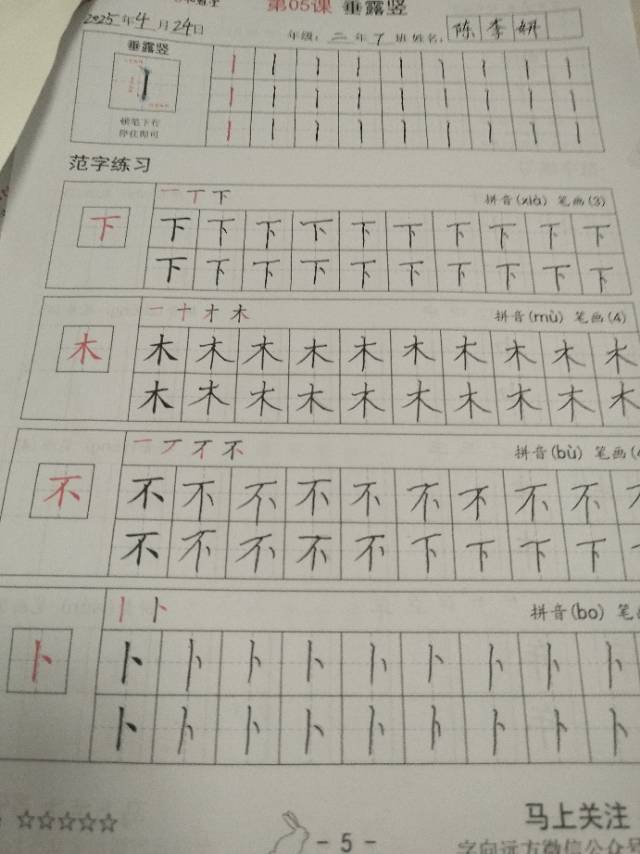 第05课 垂露竖
2025年4月24日
年级：二年7班 姓名：陈李妍
垂露竖
顿笔下行
停住即可
范字练习
一 丅 下 拼音(xià) 笔画(3)
下 下 下 下 下 下 下 下 下 下 下
下 下 下 下 下 下 下 下 下 下
一 十 才 木 拼音(mù) 笔画(4)
木 木 木 木 木 木 木 木 木 木 木
木 木 木 木 木 木 木 木 木 木
一 丆 不 不 拼音(bù) 笔画(
不 不 不 不 不 不 不 不 不 不
不 不 不 不 不 下 下 下 下
丨 卜 拼音(bo) 笔画
卜 卜 卜 卜 卜 卜 卜 卜 卜 卜
卜 卜 卜 卜 卜 卜 卜 卜 卜
☆☆☆☆☆ 马上关注
- 5 - 字向远方微信公众号